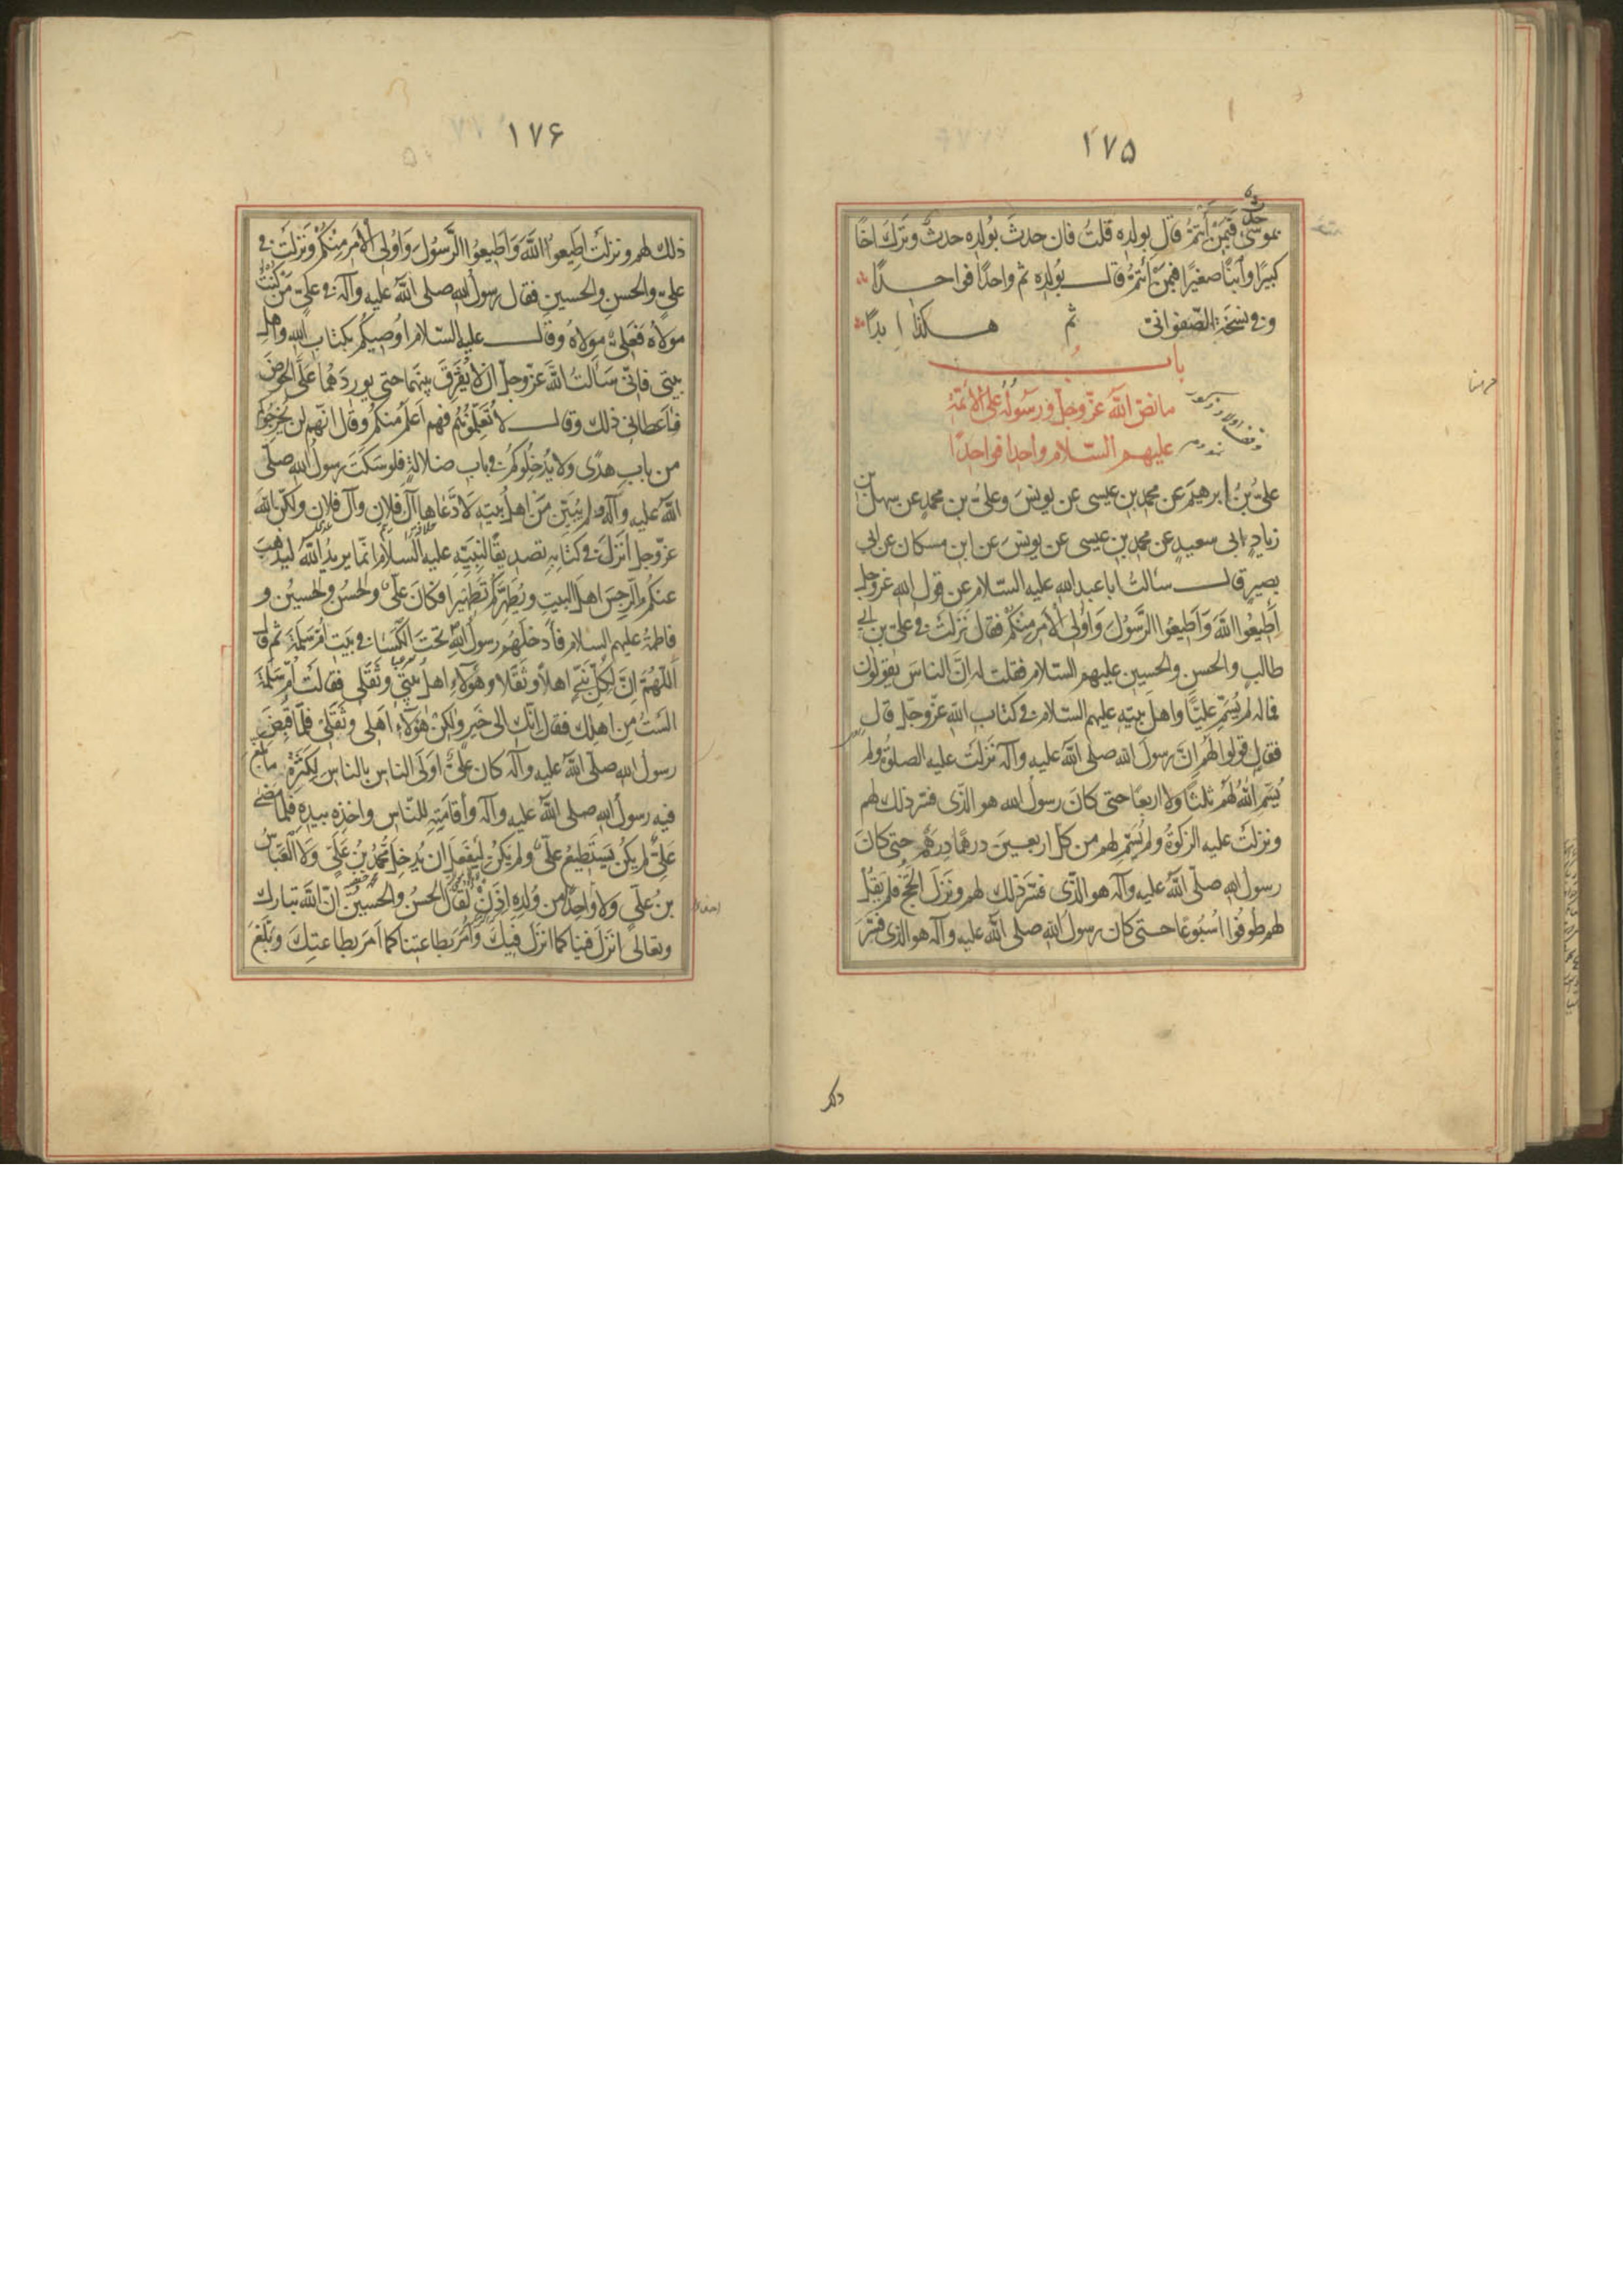 ۱۷۵
حدث
بموسى فبمن أئتم قال بولده قلت فان حدث بولده حدث وترك اخا
كبيرا وابنا صغيرا فبمن أئتم قال بولده ثم واحدا فواحدا
وفي نسخة الصفواني ثم هكذا ابدا
باب
ما نص الله عز وجل ورسوله على الائمة
عليهم السلام واحدا فواحدا
علي بن ابرهيم عن محمد بن عيسى عن يونس وعلي بن محمد عن سهل بن
زياد ابي سعيد عن محمد بن عيسى عن يونس عن ابن مسكان عن ابي
بصير قال سألت ابا عبد الله عليه السلام عن قول الله عز وجل
أطيعوا الله وأطيعوا الرسول وأولى الأمر منكم فقال نزلت في علي بن ابي
طالب والحسن والحسين عليهم السلام فقلت له ان الناس يقولون
فما له لم يسم عليا واهل بيته عليهم السلام في كتاب الله عز وجل قال
فقال قولوا لهم ان رسول الله صلى الله عليه وآله نزلت عليه الصلوة ولم
يسم الله لهم ثلثا ولا اربعا حتى كان رسول الله هو الذي فسر ذلك لهم
ونزلت عليه الزكوة ولم يسم لهم من كل اربعين درهما درهم حتى كان
رسول الله صلى الله عليه وآله هو الذي فسر ذلك لهم ونزل الحج فلم يقل
لهم طوفوا اسبوعا حتى كان رسول الله صلى الله عليه وآله هو الذي فسر
ذلك
۱۷۶
ذلك لهم ونزلت اطيعوا الله واطيعوا الرسول واولى الأمر منكم ونزلت في
علي والحسن والحسين فقال رسول الله صلى الله عليه وآله في علي من كنت
مولاه فعلي مولاه وقال عليه السلام اوصيكم بكتاب الله واهل
بيتي فاني سألت الله عز وجل ان لا يفرق بينهما حتى يوردهما على الحوض
فاعطاني ذلك وقال لا تعلموهم فهم اعلم منكم وقال انهم لن يخرجوكم
من باب هدى ولا يدخلوكم في باب ضلالة فلو سكت رسول الله صلى
الله عليه وآله ولم يبين من اهل بيته لادعاها آل فلان وآل فلان ولكن الله
عز وجل أنزل في كتابه تصديقا لنبيه عليه السلام انما يريد الله ليذهب
عنكم الرجس اهل البيت ويطهركم تطهيرا فكان علي والحسن والحسين و
فاطمة عليهم السلام فأدخلهم رسول الله تحت الكساء في بيت ام سلمة ثم قال
اللهم ان لكل نبي اهلا وثقلا وهؤلاء اهل بيتي وثقلي فقالت ام سلمة
الست من اهلك فقال انك الى خير ولكن هؤلاء اهلي وثقلي فلما قبض
رسول الله صلى الله عليه وآله كان علي اولى الناس بالناس لكثرة ما بلغ
فيه رسول الله صلى الله عليه وآله وأقامته للناس واخذه بيده فلما مضى
علي لم يكن يستطيع علي ولم يكن ليفعل ان يدخل محمد بن علي ولا العباس
بن علي ولا واحدا من ولده اذن لقال الحسن والحسين ان الله تبارك
وتعالى انزل فينا كما انزل فيك وأمر بطاعتنا كما امر بطاعتك وبلغ